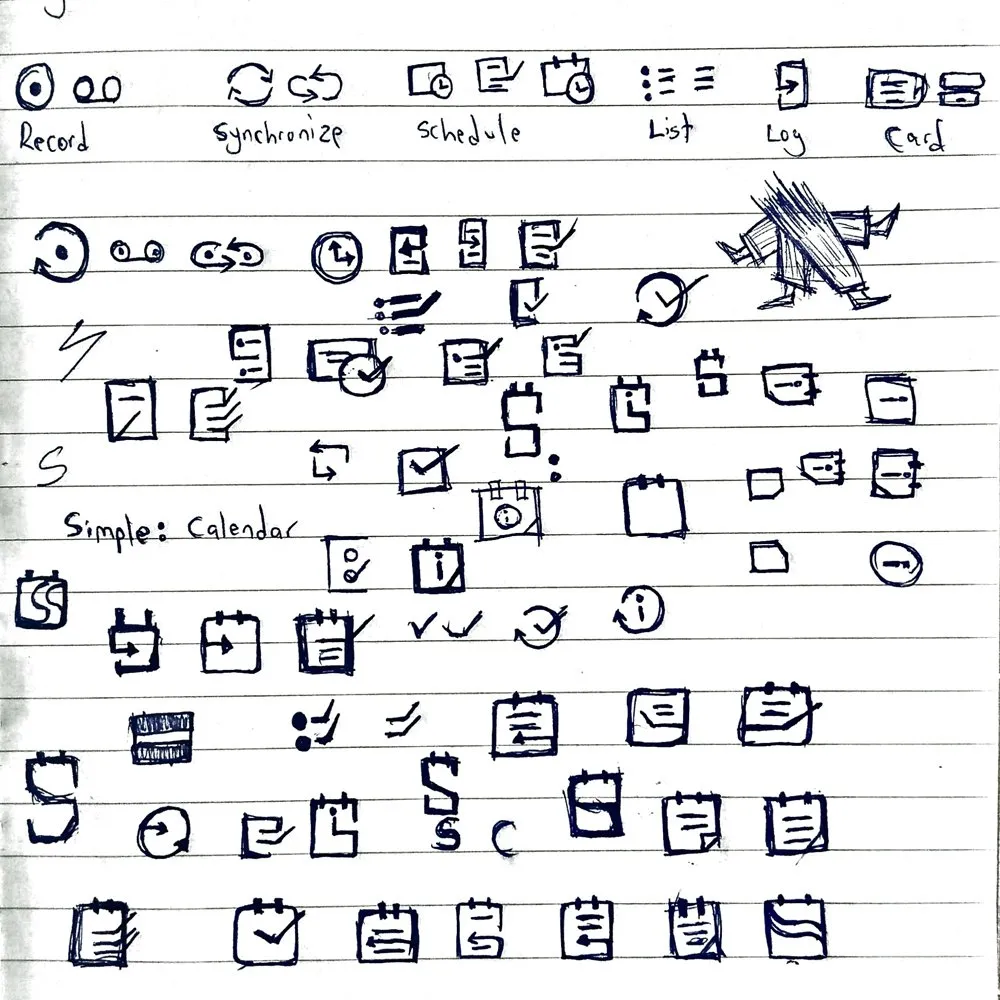 Record Synchronize Schedule List Log Card
S
Simple: Calendar
S C